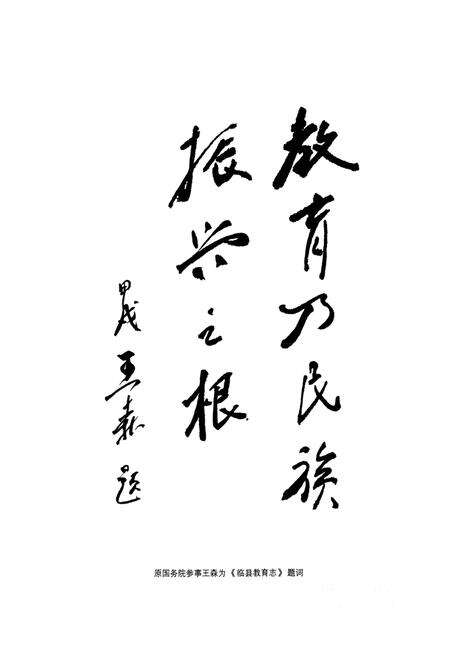 教育乃民族
振兴之根
甲戌 王森 题
原国务院参事王森为《临县教育志》题词